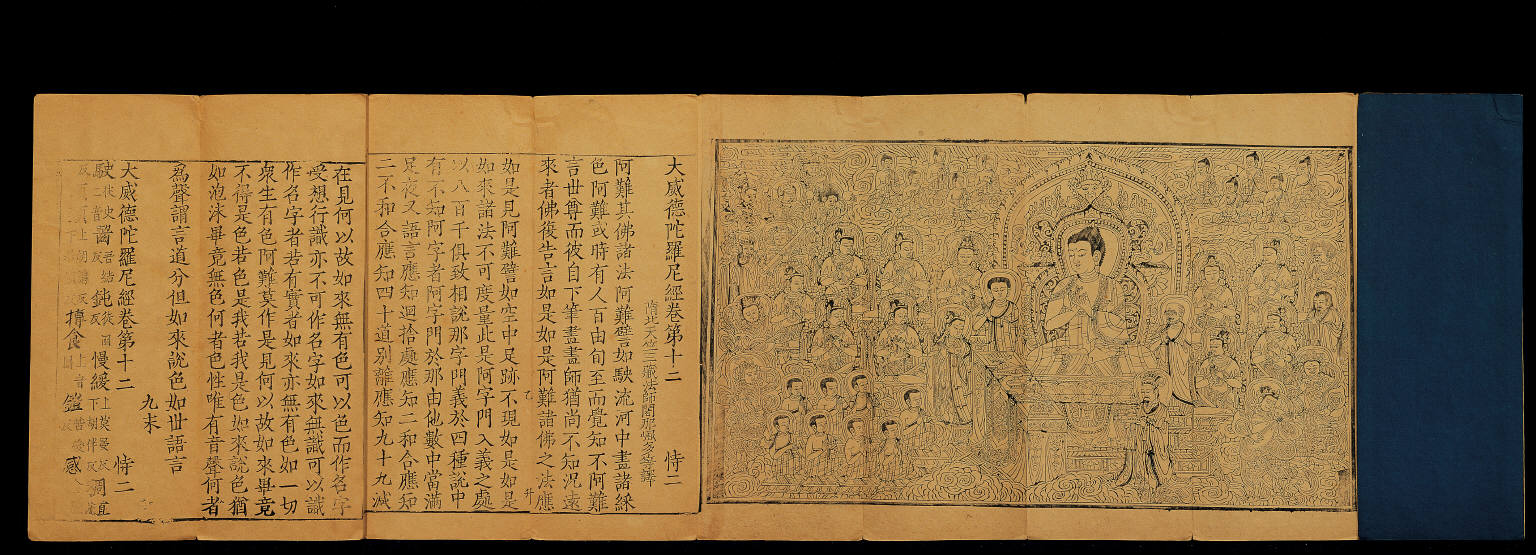 大威德陀羅尼經卷第十二　恃二
隋北天竺三藏法師闍那崛多等譯
阿難其佛諸法阿難譬如駛流河中畫諸綵
色阿難或時有人百由旬至而覺知不阿難
言世尊而彼自下筆畫畫師猶尚不知況遠
來者佛復告言如是如是阿難諸佛之法應
如是見阿難譬如空中足跡不現如是如是
如來諸法不可度量此是阿字門入義之處
以八百千俱致相說那字門義於四種說中
有不知阿字者阿字門於那由他數中當滿
足夜叉語言應知迴捨處應知二和合應知
二不和合應知四十道別離應知九十九滅
在見何以故如來無有色可以色而作名字
受想行識亦不可作名字如來無識可以識
作名字者若有實者如來亦無有色如一切
衆生有色阿難莫作是見何以故如來畢竟
不得是色若色是我若我是色如來說色猶
如泡沫畢竟無色何者色性唯有音聲何者
爲聲謂言道分但如來說色如世語言
九末
大威德陀羅尼經卷第十二　恃二
駛 鈍 慢緩
摶食 鎧